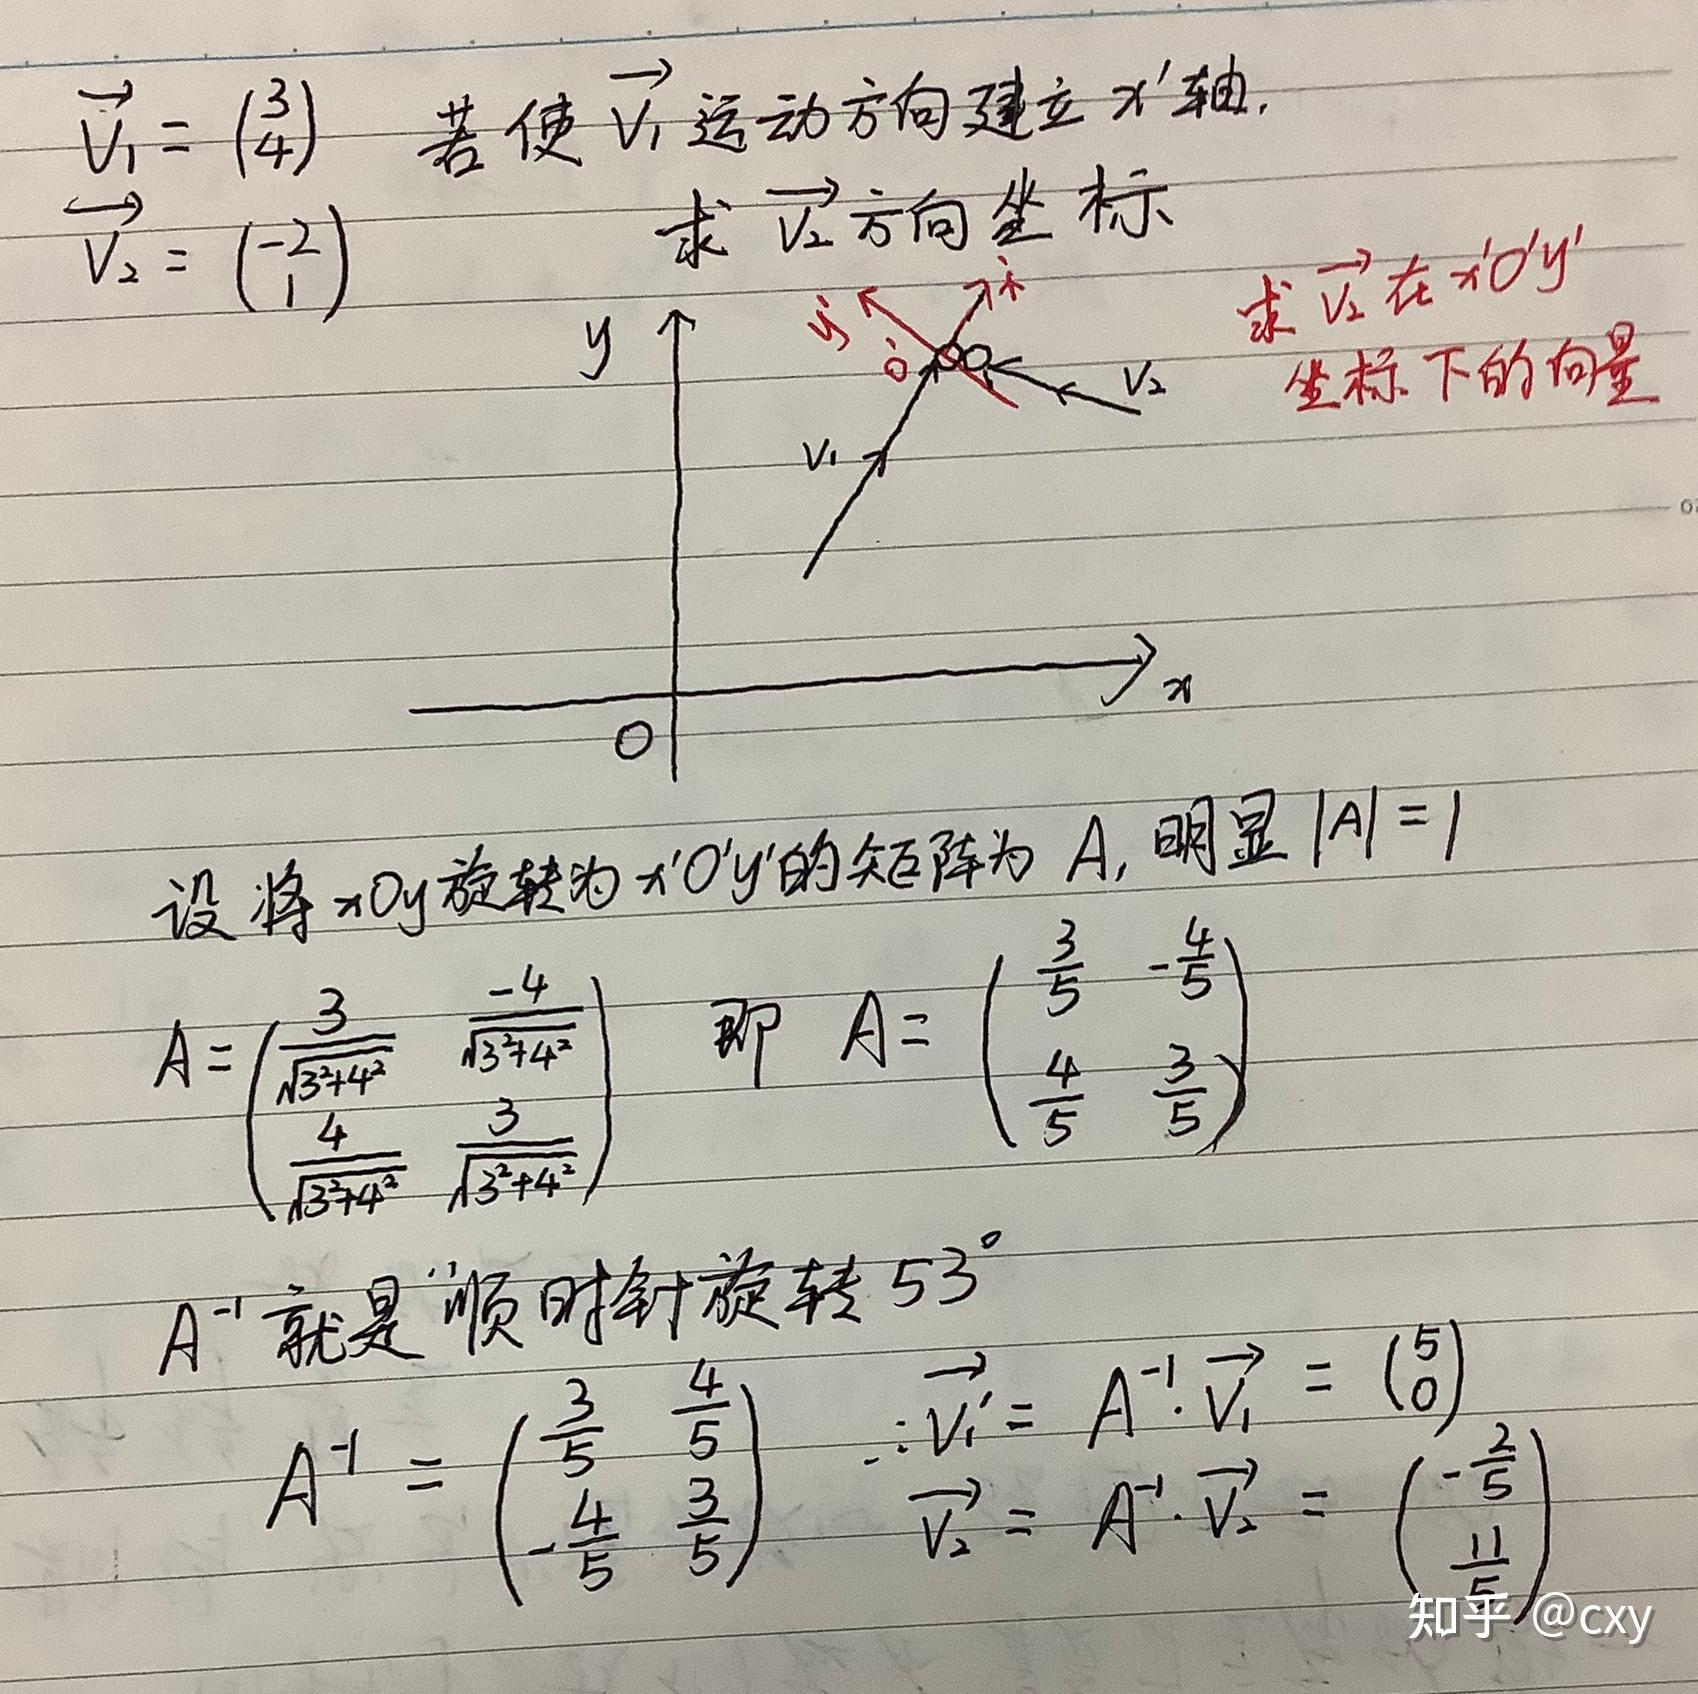 V₁ = (3 4) 若使 V₁ 运动方向建立 x' 轴.
V₂ = (-2 1) 求 V₂ 方向坐标
求 V₂ 在 x'O'y'
坐标下的向量
y
y'
x'
o'
V₂
V₁
x
O
设将 xOy 旋转为 x'O'y' 的矩阵为 A, 明显 |A| = 1
A = (3/√(3²+4²) -4/√(3²+4²) 4/√(3²+4²) 3/√(3²+4²)) 即 A = (3/5 -4/5 4/5 3/5)
A⁻¹ 就是 "顺时针旋转 53°
A⁻¹ = (3/5 4/5 -4/5 3/5)
∴ V₁' = A⁻¹·V₁ = (5 0)
V₂ = A⁻¹·V₂ = (-2/5 11/5)
知乎 @cxy